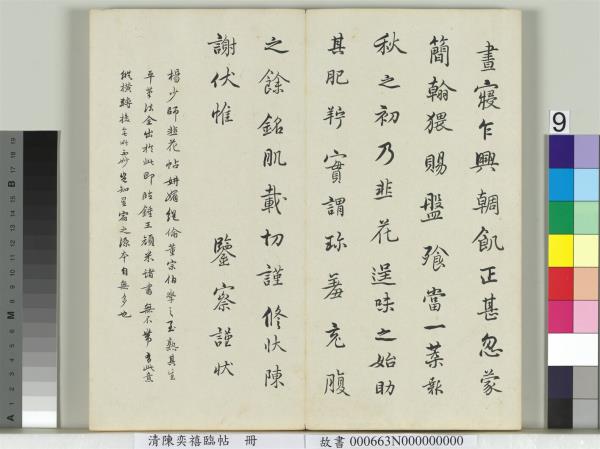 晝寢乍興朝飢正甚忽蒙
簡翰猥賜盤飱當一葉報
秋之初乃韭花逞味之始助
其肥羜實謂珍羞充腹
之餘銘肌載切謹修狀陳
謝伏惟 鑒察謹狀
楊少師韭花帖妍媚絕倫董宗伯學之至熟其生
平筆法全出於此即臨鍾王顏米諸書無不帶有此意
之源本自無多也
清陳奕禧臨帖 冊
故書 000663N000000000
9
A 1 2 3 4 5 6 M 8 9 10 11 12 13 14 15 B 17 18 19